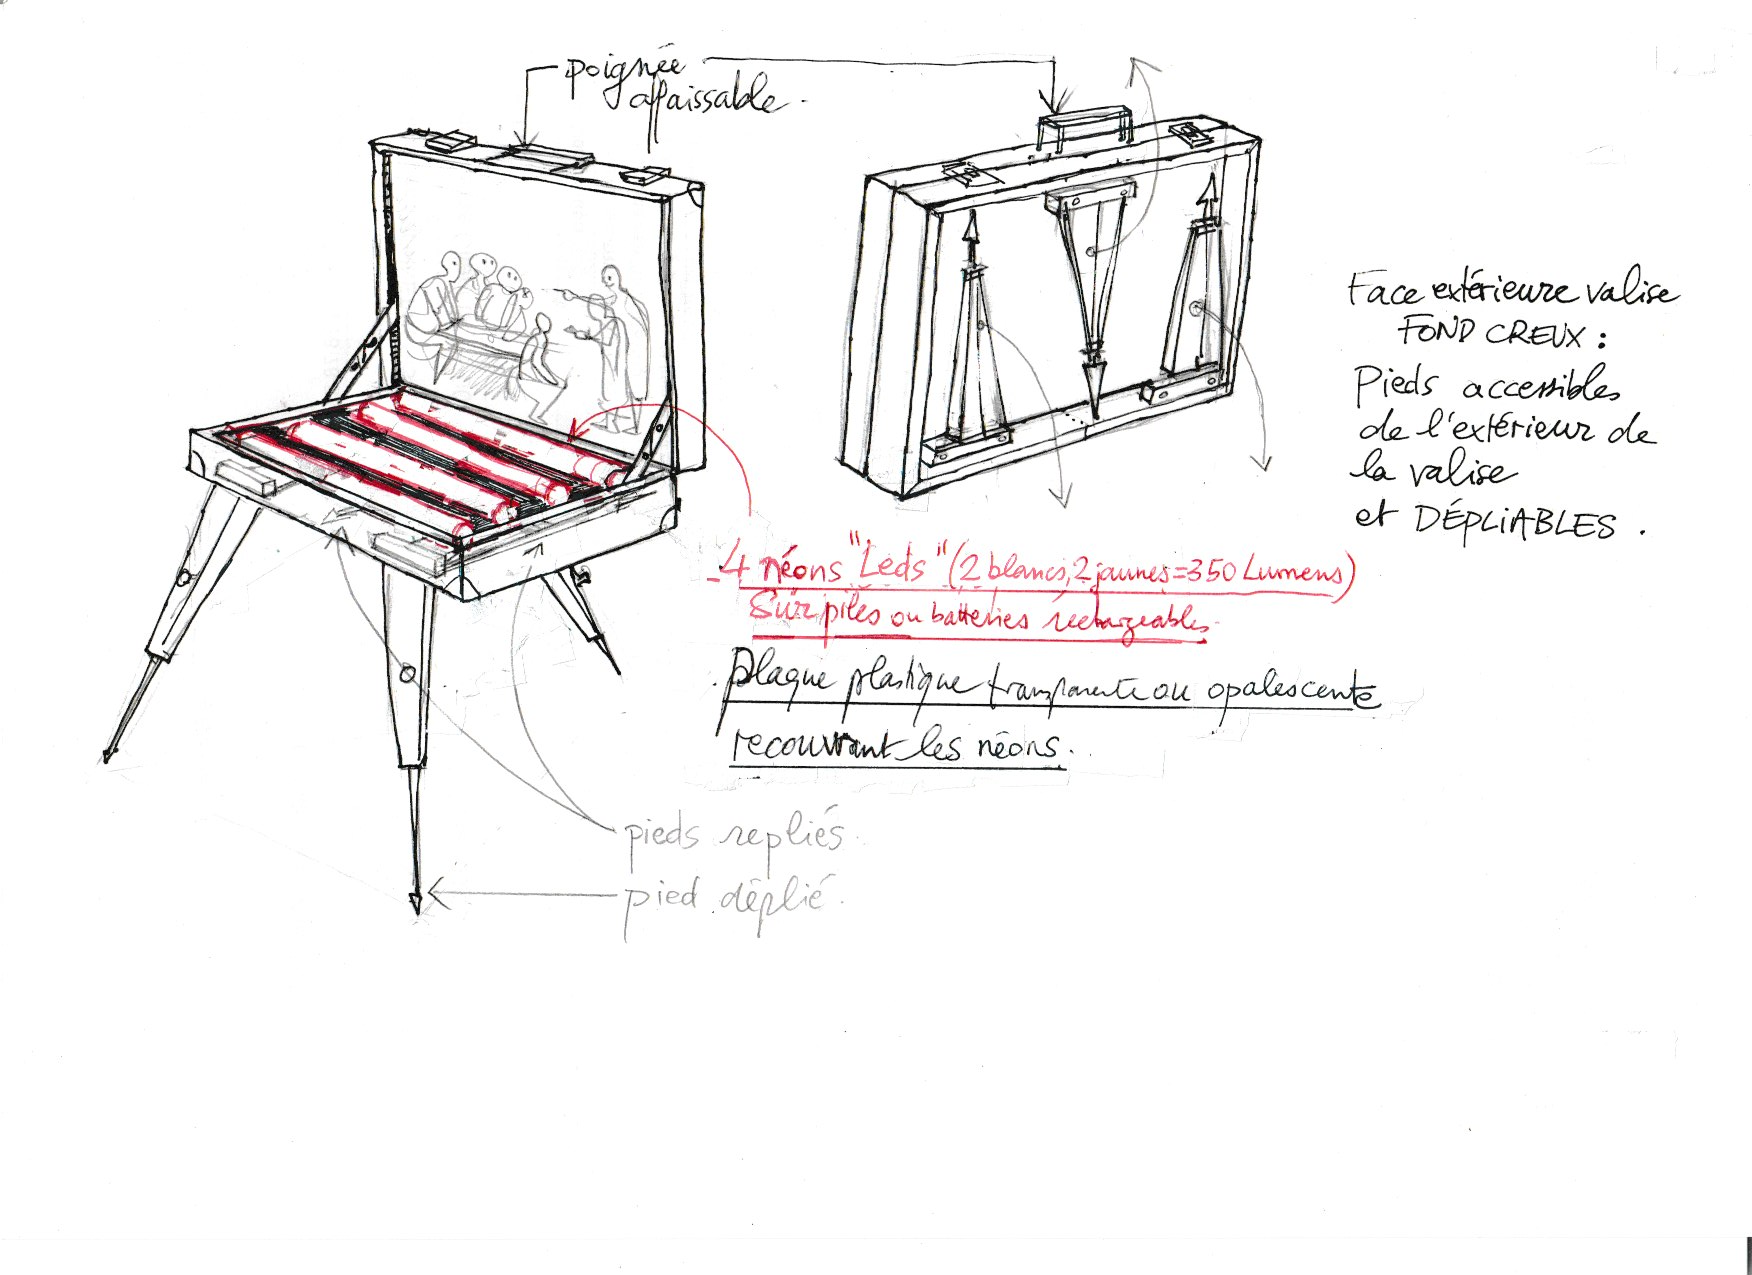 poignée
afaissable.
Face extérieure valise
FOND CREUX :
Pieds accessibles
de l'extérieur de
la valise
et DÉPLIABLES.
4 néons "Leds" (2 blancs, 2 jaunes = 350 Lumens)
Sur piles ou batteries rechargeables.
. plaque plastique transparente ou opalescente
recouvrant les néons.
pieds repliés.
pied déplié.